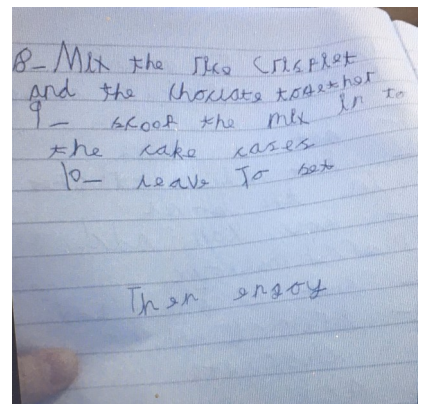 8- Mix the rice crisplet
and the choclate together
9- skoop the mix in to
the cake cases
10- leave To set
Then enjoy